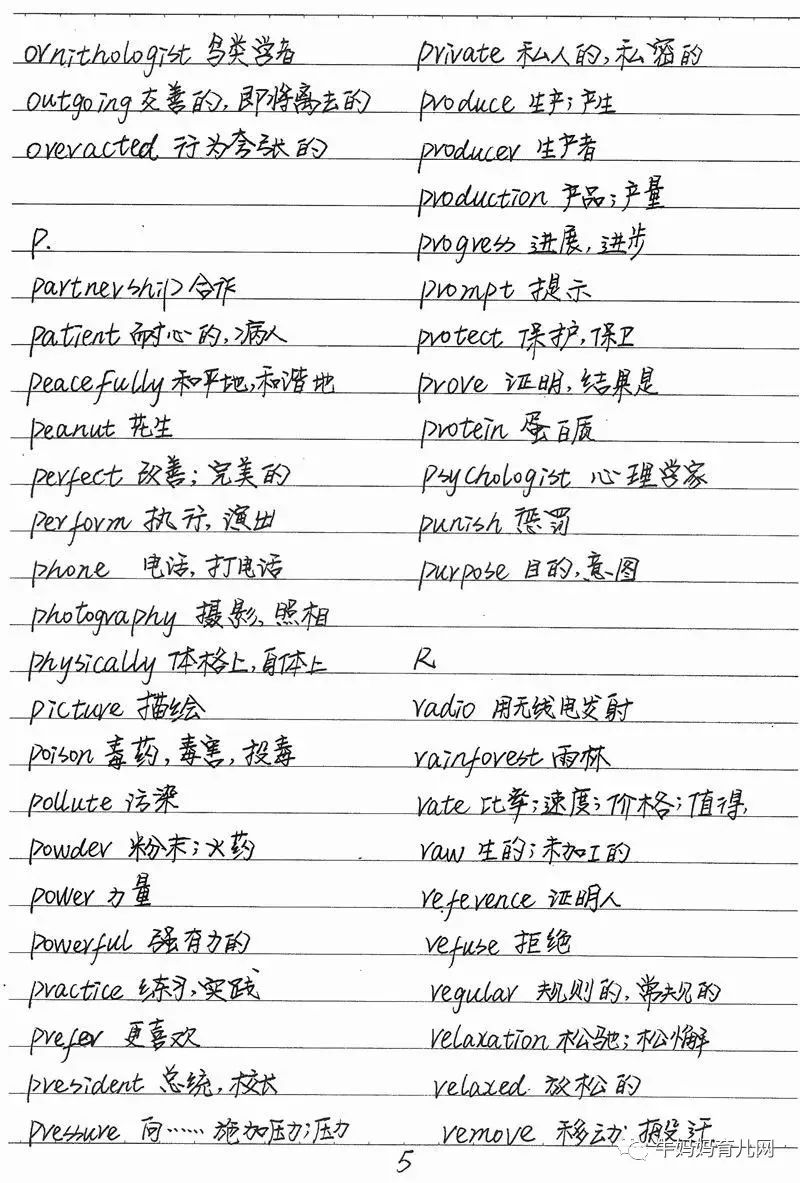 ornithologist 鸟类学者
outgoing 交善的,即将离去的
overacted 行为夸张的
P.
partnership 合作
patient 耐心的,病人
peacefully 和平地,和谐地
peanut 花生
perfect 改善;完美的
perform 执行,演出
phone 电话,打电话
photography 摄影,照相
physically 体格上,身体上
picture 描绘
poison 毒药,毒害,投毒
pollute 污染
powder 粉末;火药
power 力量
powerful 强有力的
practice 练习,实践
prefer 更喜欢
president 总统,校长
pressure 向……施加压力;压力
private 私人的,私密的
produce 生产;产生
producer 生产者
production 产品;产量
progress 进展,进步
prompt 提示
protect 保护,保卫
prove 证明,结果是
protein 蛋白质
psychologist 心理学家
punish 惩罚
purpose 目的,意图
R
radio 用无线电发射
rainforest 雨林
rate 比率;速度;价格;值得,
raw 生的;未加工的
reference 证明人
refuse 拒绝
regular 规则的,常规的
relaxation 松驰;松懈
relaxed 放松的
remove 移动
5
牛妈妈育儿网